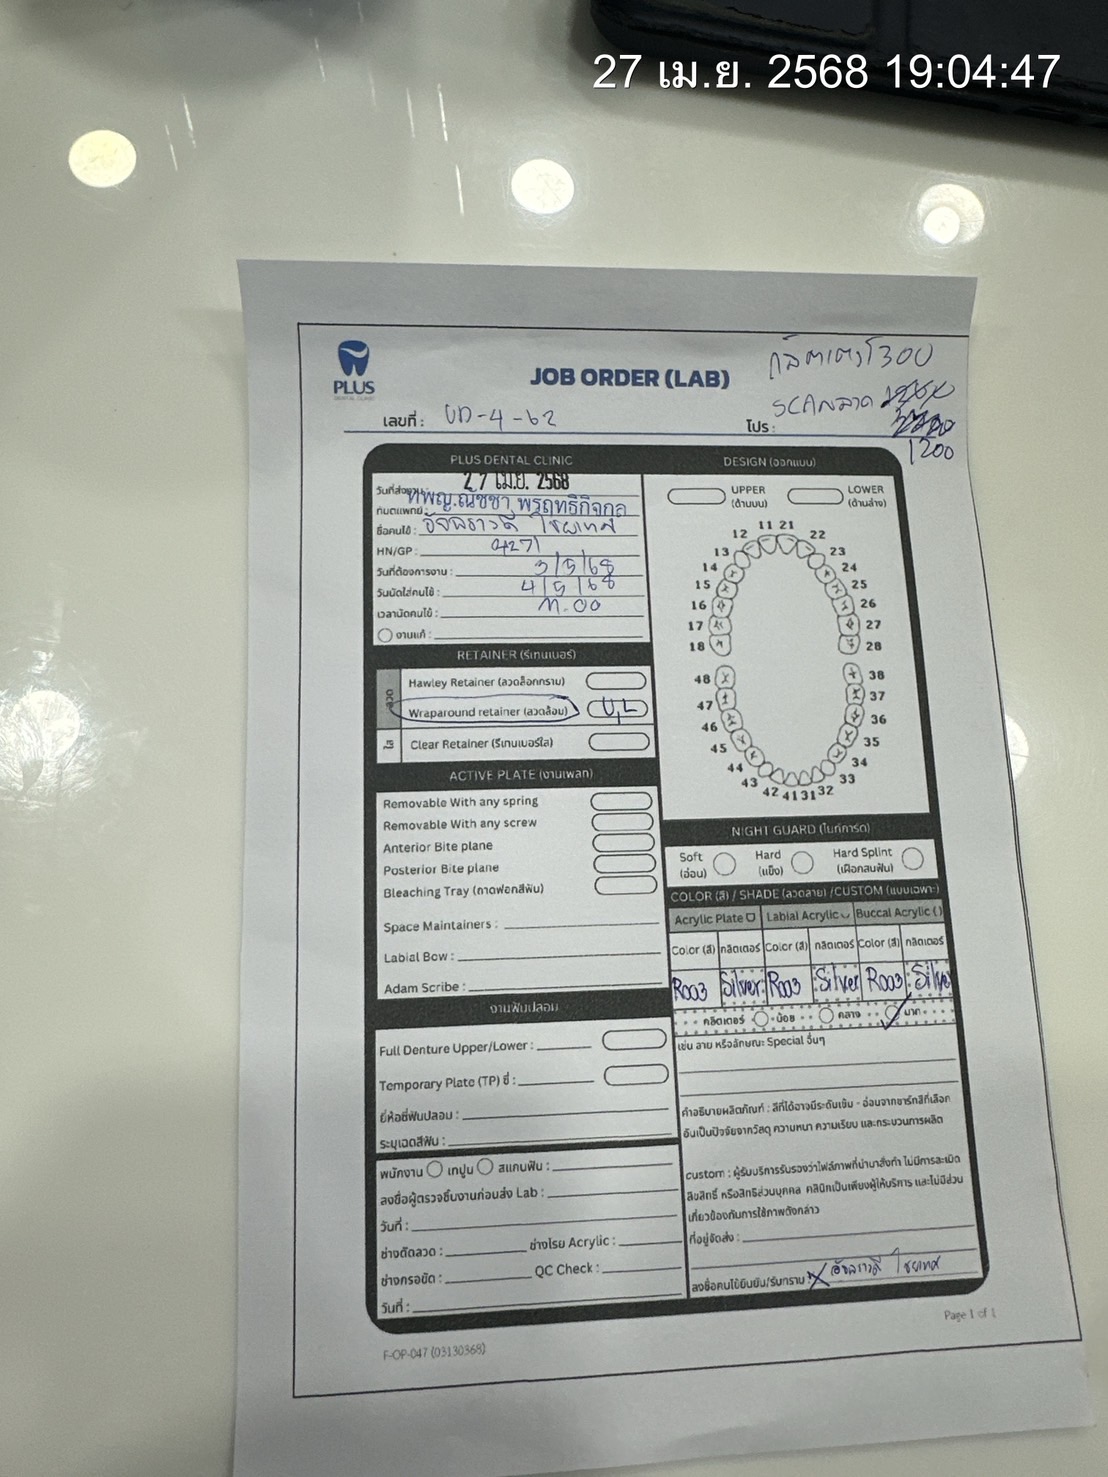 27 เม.ย. 2568 19:04:47
PLUS
DENTAL CLINIC
JOB ORDER (LAB)
กลิตเตอร์ 300
SCANลวด
1200
เลขที่ : UD-4-62
โปร :
PLUS DENTAL CLINIC
วันที่ส่งงาน : 27 เม.ย. 2568
ทันตแพทย์ : ทพญ.ณัชชา พรฤทธิกิจกุล
ชื่อคนไข้ : อัจฉราวดี ไชยเทศ
HN/GP : 4271
วันที่ต้องการงาน : 3/5/68
วันนัดใส่คนไข้ : 4/5/68
เวลานัดคนไข้ : 11.00
งานแก้ :
RETAINER (รีเทนเนอร์)
ลวด
Hawley Retainer (ลวดล็อกกราม)
Wraparound retainer (ลวดล้อม) U,L
ใส
Clear Retainer (รีเทนเนอร์ใส)
ACTIVE PLATE (งานเพลท)
Removable With any spring
Removable With any screw
Anterior Bite plane
Posterior Bite plane
Bleaching Tray (ถาดฟอกสีฟัน)
Space Maintainers :
Labial Bow :
Adam Scribe :
งานฟันปลอม
Full Denture Upper/Lower :
Temporary Plate (TP) ซี่ :
ยี่ห้อซี่ฟันปลอม :
ระบุเฉดสีฟัน :
พนักงาน เทปูน สแกนฟัน :
ลงชื่อผู้ตรวจชิ้นงานก่อนส่ง Lab :
วันที่ :
ช่างดัดลวด : ช่างโรย Acrylic :
ช่างกรอขัด : QC Check :
วันที่ :
DESIGN (ออกแบบ)
UPPER
(ด้านบน)
LOWER
(ด้านล่าง)
11 21
12 22
13 23
14 24
15 25
16 26
17 27
18 28
48 38
47 37
46 36
45 35
44 34
43 33
42 41 31 32
NIGHT GUARD (ไนท์การ์ด)
Soft
(อ่อน)
Hard
(แข็ง)
Hard Splint
(เฝือกสบฟัน)
COLOR (สี) / SHADE (ลวดลาย) /CUSTOM (แบบเฉพาะ)
Acrylic Plate Labial Acrylic Buccal Acrylic ( )
Color (สี) กลิตเตอร์ Color (สี) กลิตเตอร์ Color (สี) กลิตเตอร์
R003 Silver R003 Silver R003 Silver
กลิตเตอร์ น้อย กลาง มาก
เช่น ลาย หรือลักษณะ Special อื่นๆ
คำอธิบายผลิตภัณฑ์ : สีที่ได้อาจมีระดับเข้ม - อ่อนจากชาร์ทสีที่เลือก
อันเป็นปัจจัยจากวัสดุ ความหนา ความเรียบ และกระบวนการผลิต
custom : ผู้รับบริการรับรองว่าไฟล์ภาพที่นำมาสั่งทำ ไม่มีการละเมิด
ลิขสิทธิ์ หรือสิทธิส่วนบุคคล คลินิกเป็นเพียงผู้ให้บริการ และไม่มีส่วน
เกี่ยวข้องกับการใช้ภาพดังกล่าว
ที่อยู่จัดส่ง :
ลงชื่อคนไข้ยืนยัน/รับทราบ : อัจฉราวดี ไชยเทศ
Page 1 of 1
F-OP-047 (03130368)